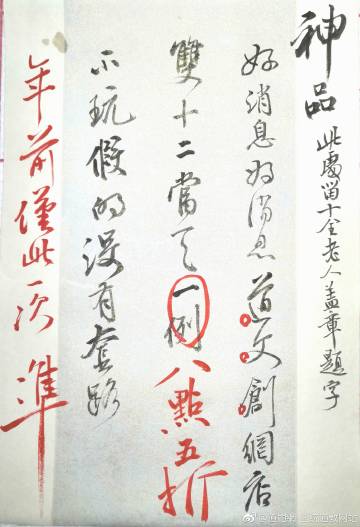 神品
此處留十全老人蓋章題字
好消息好消息道文創網店
雙十二當天一例八點五折
不玩假的沒有套路
年前僅此次 準